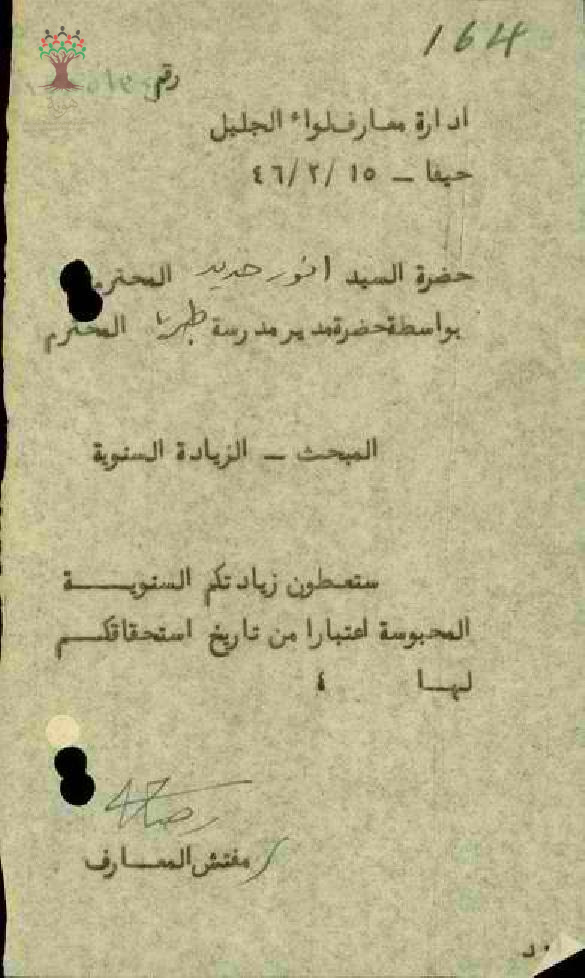 164
رقم
ادارة معارف لواء الجليل
حيفا – ١٥ /٢/ ٤٦
حضرة السيد انور حديد المحترم
بواسطة حضرة مدير مدرسة طبريا المحترم
المبحث – الزيادة السنوية
ستعطون زيادتكم السنويـــة
المحبوسة اعتبارا من تاريخ استحقاقكـم
لهـا ٤
مفتش المعـارف